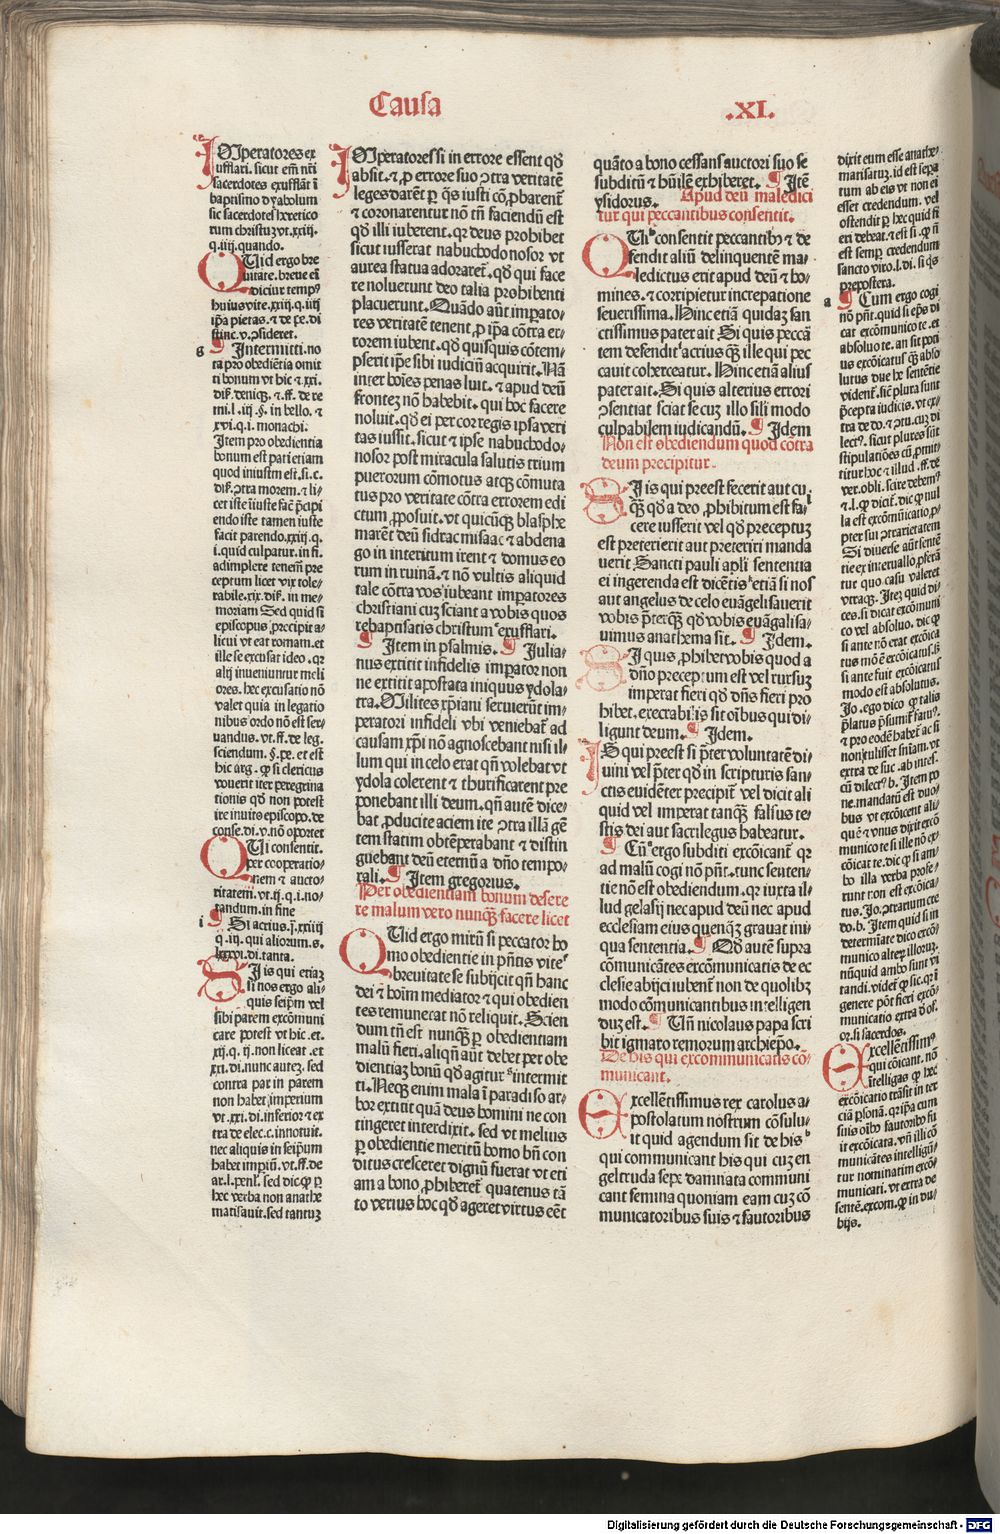 Causa
.XI.
IMperatores ex
sufflari. sicut em̄ nr̄i
sacerdotes exufflāt ī
baptismo dyabolum
sic sacerdotes heretico
rum christuȝ vt .xxiij.
q. iiij. quando.
QUid ergo bre
uitate. breue em̄
dicitur temp⁹
huius vite. xxiij. q. iiij
ip̄a pietas. ⁊ de pe. di
stinc. v. ↄsideret.
g ¶ Intermitti. no
ta pro obediētia omit
ti bonum vt hic ⁊ xxi.
dis. deniq̄. ⁊. ff. de re
mi. l. iij. §. in bello. ⁊
xvi. q. i. monachi.
Item pro obedientia
bonum est pati etiam
quod iniustm est. ii. c.
dis. ↄtra morem. ⁊ li-
cet iste iiuste fac̄ p̄capi
endo iste tamen iuste
facit parendo. xxiij. q.
i. quid culpatur. in fi.
adimplere tenem̄ pre
ceptum licet vix tole-
rabile. xix. dis. in me-
moriam Sed quid si
episcopus precipit a-
licui vt eat romam. et
ille se excusat ideo. qr
alij inueniuntur meli
ores. hec excusatio nō
valet quia in legatio
nibus ordo nō est ser-
uandus. vt. ff. de leg.
sciendum. §. pe. et est
hic arg. ꝙ si clericus
vouerit iter peregrina
tionis qd̄ non potest
ire inuito episcopo. de
conse. di. v. nō oportet
QUi consentit.
per cooperatio-
nem ⁊ aucto-
ritatem. vt. ij. q. i. no-
tandum. in fine
i ¶ Si acrius. j. xxiiij
q. iij. qui aliorum. s.
lxxxvi. di. tanta.
SI is qui etiaȝ
si nos ergo ali-
quis seip̄m vel
sibi parem excōmuni
care potest vt hic. et.
xij. q. ij. non liceat. et
xxi. di. nunc autez. sed
contra par in parem
non habet imperium
vt. xxi. di. inferior ⁊ ex
tra de elec. c. innotuit.
nec aliquis in seip̄um
habet imp̄iū. vt. ff. de
ar. l. penl̄. sed dic ꝙ p
hec verba non anathe
matisauit. sed tantuȝ
IMperatores si in errore essent qd̄
absit. ⁊ ꝓ errore suo ↄtra veritatē
leges darēt p q̄s iusti cō, pbarent̄
⁊ coronarentur nō tn̄ faciendū est
qd̄ illi iuberent. qr deus prohibet
sicut iusserat nabuchodonosor vt
aurea statua adoraret̄. qd̄ qui face
re noluerunt deo talia prohibenti
placuerunt. Quādo aūt impato-
res veritatē tenent, p ip̄a cōtra er-
rorem iubent. qd̄ quisquis cōtem-
pserit ip̄e sibi iudiciū acquirit. Nā
inter hoīes penas luit. ⁊ apud deū
frontez nō habebit. qui hoc facere
noluit. qd̄ ei per cor regis ipsa veri
tas iussit. sicut ⁊ ipse nabuchodo-
nosor post miracula salutis trium
puerorum cōmotus atqȝ cōmuta
tus pro veritate cōtra errorem edi
ctum ꝓposuit. vt quicūqȝ blasphe
marēt deū sidrac misaac ⁊ abdena
go in interitum irent ⁊ domus eo
rum in ruinā. ⁊ nō vultis aliquid
tale cōtra vos iubeant imp̄atores
christiani cuȝ sciant a vobis quos
rebaptisatis christum exufflari.
¶ Item in psalmis. ¶ Julia-
nus extitit infidelis imp̄ator non
ne extitit apostata iniquus ydola-
tra. Milites xp̄iani seruierūt im-
peratori infideli vbi veniebat̄ ad
causam xp̄i nō agnoscebant nisi il-
lum qui in celo erat qn̄ volebat vt
ydola colerent ⁊ thurificarent pre
ponebant illi deum. qn̄ autē dice-
bat ꝓducite aciem ite ↄtra illā gē
tem statim obtēperabant ⁊ distin
guebant deū eternū a dn̄o tempo-
rali. ¶ Item gregorius.
Per obedientiam bonum desere
re malum vero nunqȝ facere licet
QUid ergo mirū si peccator ho
mo obedientie in pn̄tis vite
breuitate se subijcit qn̄ hanc
dei ⁊ hoīm mediator ⁊ qui obedien
tes remunerat nō reliquit. Scien
dum tn̄ est nunqȝ p obedientiam
malū fieri. aliqn̄ aūt debet per obe
dientiaȝ bonū qd̄ agitur intermit
ti. Necqȝ enim mala ī paradiso ar-
bor extitit quā deus homini ne con
tingeret interdixit. sed vt melius
p obedientie meritū homo bn̄ con
ditus cresceret dignū fuerat vt eti
am a bono, phiberet̄ quatenus tā
to verius hoc qd̄ ageret virtus eēt
quāto a bono cessans auctori suo se
subditū ⁊ hūilē exhiberet. ¶ Itē
ysidorus. Apud deū maledici
tur qui peccantibus consentit.
QUi consentit peccantibȝ ⁊ de
fendit aliū delinquentē ma-
ledictus erit apud deū ⁊ ho-
mines. ⁊ corripietur increpatione
seuerissima. Hinc etiā quidaȝ san
ctissimus pater ait Si quis peccā
tem defendit acrius qȝ ille qui pec
cauit coherceatur. Hinc etiā alius
pater ait. Si quis alterius errori
ↄsentiat sciat se cuȝ illo sili modo
culpabilem iudicandū. ¶ Idem
Non est obediendum quod cōtra
deum precipitur.
SI is qui preest fecerit aut cui
qȝ qd̄ a deo, phibitum est fa-
cere iusserit vel qd̄ preceptuȝ
est preterierit aut preteriri manda
uerit Sancti pauli apl̄i sententia
ei ingerenda est dicētis etiā si nos
aut angelus de celo euāgelisauerit
vobis p̄terqȝ qd̄ vobis euāgalisa-
uimus anathema sit. ¶ Idem.
SI quis, phibet vobis quod a
dn̄o preceptum est vel rursuȝ
imperat fieri qd̄ dn̄s fieri pro
hibet. execrabilis sit oībus qui di-
ligunt deum. ¶ Idem.
IS qui preest si p̄ter voluntatē di-
uini vel p̄ter qd̄ in scripturis san-
ctis euidēter precipit̄ vel dicit ali
quid vel imperat tanqȝ falsus te-
stis dei aut sacrilegus habeatur.
¶ Cū ergo subditi excōicant̄ qr
ad malū cogi nō pn̄t. tunc senten-
tie nō est obediendum. qr iuxta il-
lud gelasij nec apud deū nec apud
ecclesiam eius quenqȝ grauat ini
qua sententia. ¶ Qd̄ autē supra
cōmunicātes excōmunicatis de ec
clesie abijci iubent̄ non de quolibȝ
modo cōmunicantibus intelligen
duȝ est. ¶ Un̄ nicolaus papa scri
bit ignato remorum archiep̄o.
De his qui excommunicatis cō-
municant.
EXcellētissimus rex carolus a-
postolatum nostrum cōsulu-
it quid agendum sit de his
qui communicant his qui cuȝ en
geltruda sepe damnata communi
cant femina quoniam eam cuȝ cō
municatoribus suis ⁊ fautoribus
dixit eum esse anathe-
matisatuȝ. id est sepa
tum ab eis vt non ei
esset credendum. vel
ostendit p hec quid fi
eri debeat. ⁊ est si. ꝙ n̄
est semp credendum
sancto viro. l. di. si q̄s
prepostera.
a ¶ Cum ergo cogi
nō pn̄t. quid si ep̄s di
cat excōmunico te. et
absoluo te. an sit poti
us excōicatus qȝ abso
lutus due he sentētie
vident̄. sic̄ plura sunt
p̄cepta iudicis. vt ex-
tra de do. ⁊ ↄtu. cuȝ di
lect⁹. sicut plures sūt
stipulatiōes cū, pmit-
titur hoc ⁊ illud. ff. de
ver. obli. scire debem⁹
⁊. l. ꝙ dicit̄. dic ꝙ nul
la est excōmunicatio, p-
pter sui ↄtrarietatem
Si diuerse aūt sentē
tie ex interuallo, pferā
tur quo casu valeret
vtraqȝ. Iteȝ quid di-
ces. si dicat excōmuni
co vel absoluo. dic ꝙ
si ante nō erat excōica
tus mō ē excōicatus. s̄ȝ
si ante fuit excōicatus
modo est absolutus.
Jo. ego dico ꝙ talis
p̄latus p̄sumit̄ fatu⁹.
⁊ pro eodē habet̄ ac si
non tulisset sn̄iam. vt
extra de suc. ab intes.
cū dilect⁹ b. Item po
ne. mandatū est duo-
bus vt excōicent ali-
quē ⁊ vnus dixit excō
munico te si ille nō ex-
cōicat te. dic ꝙ si am-
bo illa verba profe-
runt non est excōica-
tus. Jo. ↄtrarium cre
do. b. Item quid si in
determīate dico excō-
munico alteȝ illoruȝ.
nūquid ambo sunt vi
tandi. videt̄ ꝙ sic. qr ī
genere pōt fieri excō-
municatio extra d̄ of.
or. si sacerdos.
EXcellētissim⁹
qui cōicant. nō
intelligas ꝙ hec
excōicatio trāsit in ter
ciā p̄sonā. qr ip̄a cum
suis oībȝ fautoribȝ fu
it excōicata. vn̄ illi cō
municātes intelligūt̄
tur nominatim excō-
municati. vt extra de
sentē. excom. ꝙ in du-
bijs.
Digitalisierung gefördert durch die Deutsche Forschungsgemeinschaft - DFG